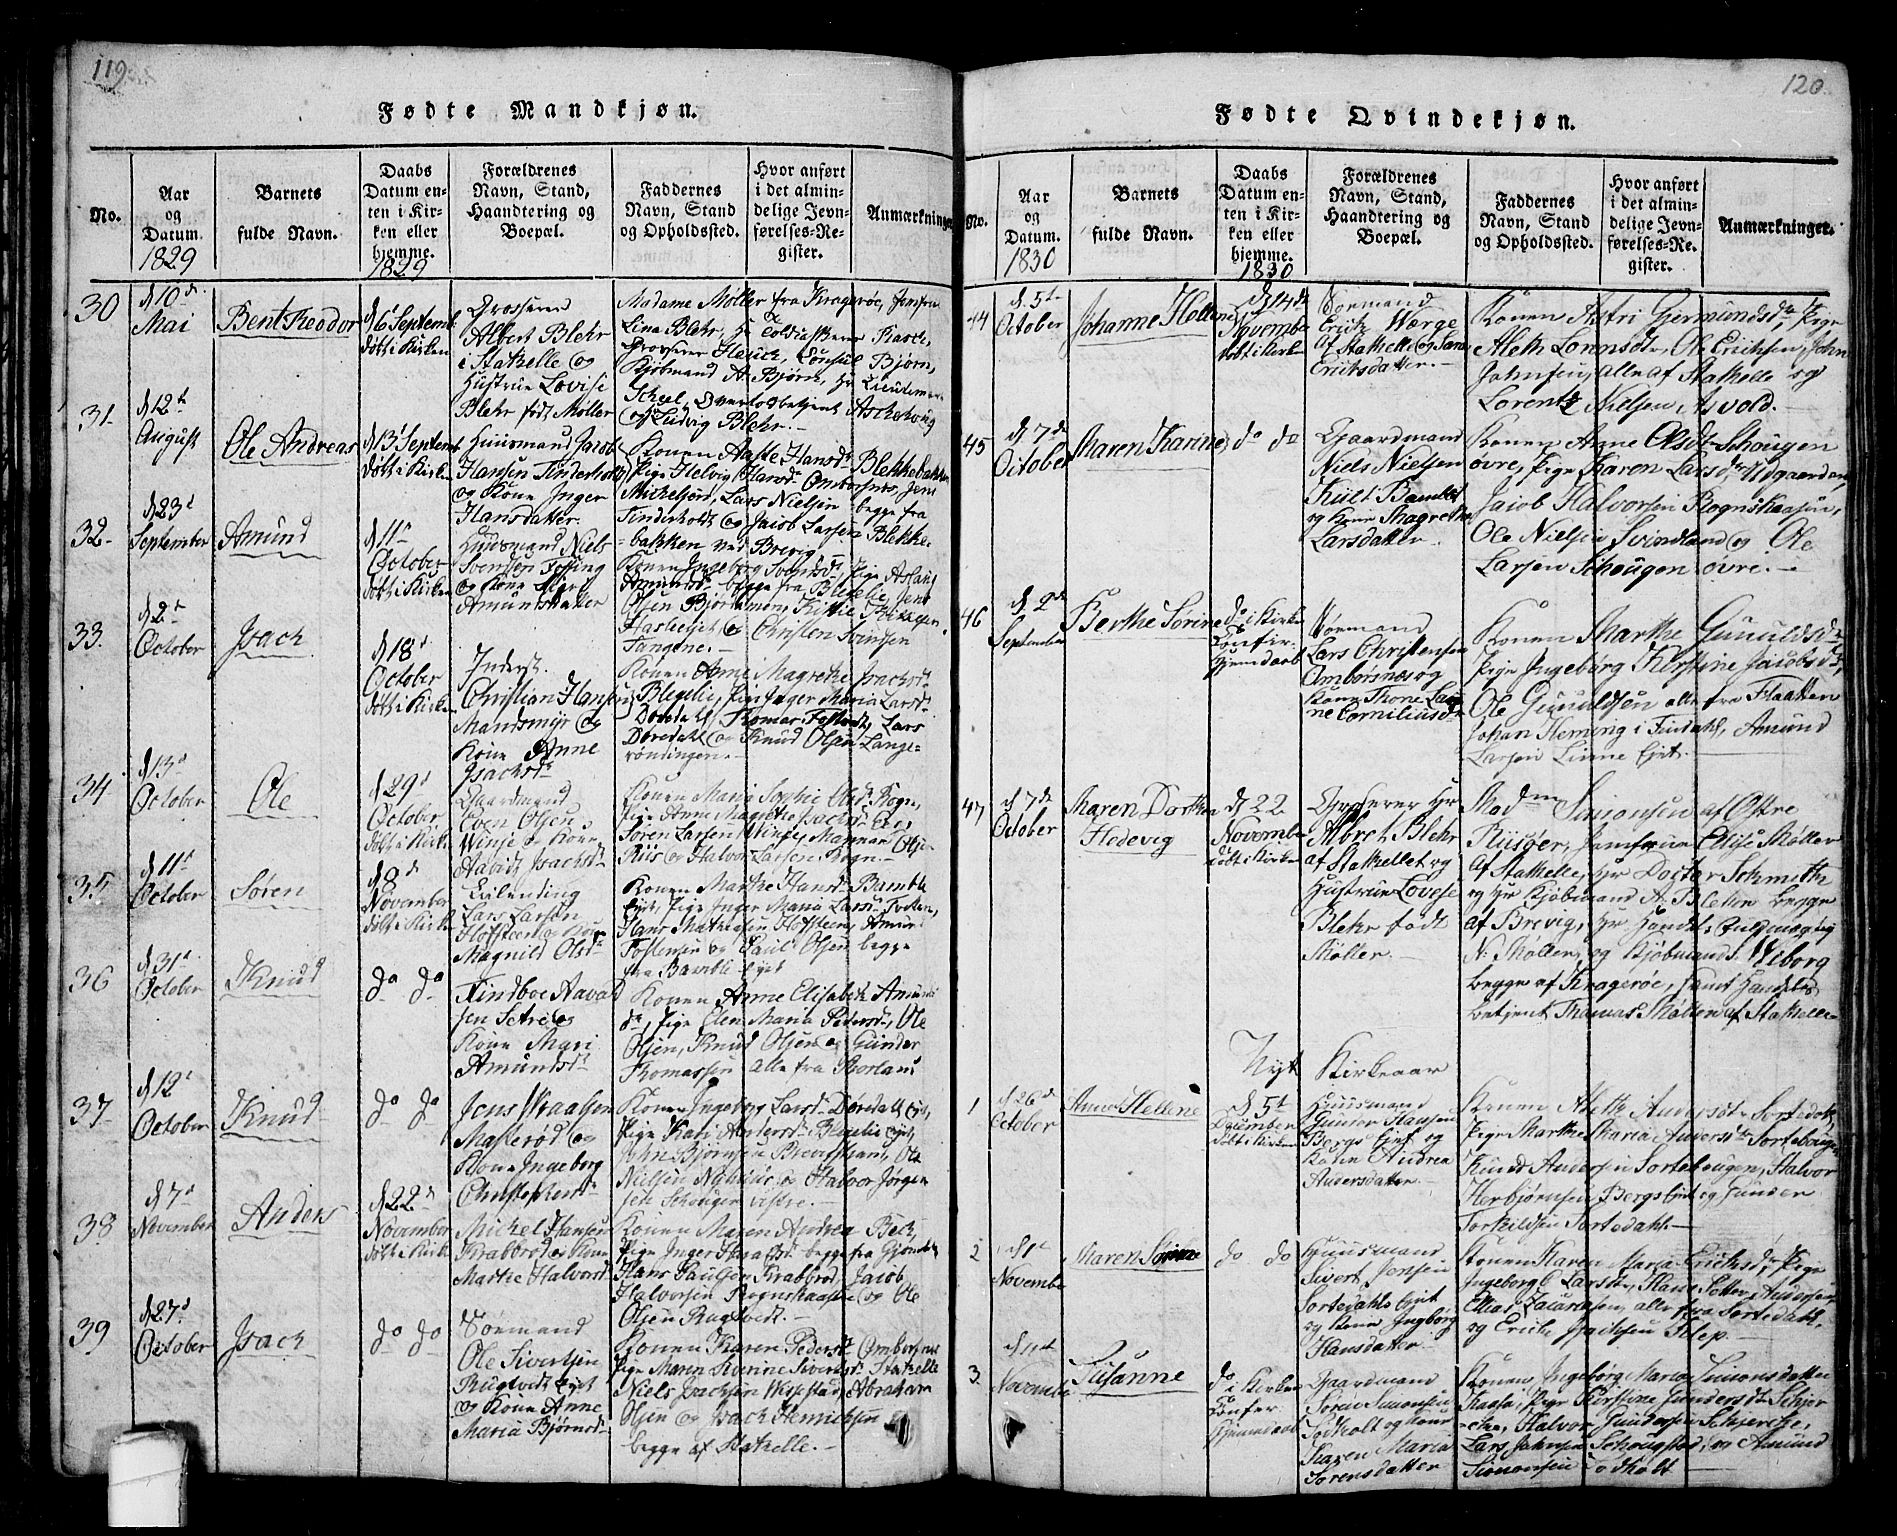 119
Fødte Mandkjøn.
No.
Aar
og
Datum.
1829
Barnets
fulde Navn.
Daabs
Datum en-
ten i Kir-
ken eller
hjemme.
1829
Forældrenes
Navn, Stand,
Haandtering og
Boepæl.
Faddernes
Navn, Stand
og Opholdssted.
Hvor anført
i det almin-
delige Jevn-
førelses-Re-
gister.
Anmærkninger
30
d 10de
Mai
Bent Teodor
d 6 Septemb
døbt i Kirken
Grosserer
Albert Blehr
i Stathelle og
Hustrue Lovise
Blehr født Møller
Madame Møller fra Kragerøe, Jomfru
Lina Blehr,
Grosserer Heuch, Consul Bjørn,
Kjøbmand A. Bjørn, Hr
og Ludvig Blehr.
31
d 12te
August
Ole Andreas
d 13 Septemb
døbt i Kirken
Huusmand Jacob
Hansen Finderholt
og Kone Inger
Hansdatter
Konen Aaste Hansdr Blekkebakken
Pige Helvig Hansd. Ombornes, Jens
Mickelsen, Lars Nielsen begge fra
Tinderholt og Jacob Larsen Blekke-
bakken ved Brevig
32
d 23d
September
Amund
d 11te
October
døbt i Kirken
Huusmand Niels
Svendsen Fossing
og Kone Sigri
Amundsdatter
Konen Ingeborg Svensd, Pige Aslaug
Amundsd begge fra Blekelie, Jens
Olsen
og Christen Svensen
Tangene.
33.
d 2de
October
Isach
d 18d
October
døbt i Kirken
Inderst
Christian Hansen
Mandsmyr og
Kone Anne
Isachsd
Konen Anne Magrethe Isachsd
Blegelie, Pige Inger Maria Larsd
Dørdahl, Tomas Lars
Dørdahl og Knud Olsen Lange-
røndingen.
34
d 13d
October
Ole
d 29d
October
døbt i Kirke
Gaardmand
Even Olsen
Winje og Kone
Isachsd
Konen Marie Sophie Olsd. Rogn,
Pige Anne Magrethe Isachsd
Søren Larsen Winje, Magnar Olsen
Riis og Halvor Larsen Rogn.
35
d 11te
October
Søren
d 8d
November
døbt i Kirk
Lars Larsen
Hofsteen og Kone
Magnild Olsd
Konen Marthe Hansd Bamble
Ejet, Pige Inger Maria Larsd
Hans Mathiesen Hofsteen, Amund
Tostensen og Paul Olsen begge
fra Bamble Ejet
36
d 31te
October
Knud
do do
Findboe Aavald
sen Setre og
Kone Mari
Amundsd
Konen Anne Elisabeth Amund
da, Pige Elen Maria Pedersd, Ole
Olsen, Knud Olsen og Gunder
Tomassen alle fra Skorland
37
d 12t
October
Knud
do do
Jens Wraalsen
Masterød og
Kone Ingeborg
Christophersd
Konen Ingeborg Larsd Dørdahl Ejet,
Pige Kari Andersd Blegelie ejet,
John Bjørnsen Ole
Nielsen og Halvor Jørgen
sen Schougen vestre.
38
d 7d
November
Anders
d 22d
November
døbt i Kirk
Mickel Hansen
Krabberød og Kone
Marthe Halvorsd
Konen Maren Andrea Beck,
Pige Inger begge fra
Hans Paulsen Krabberød, Jacob
Halvorsen Rognskaasen og Ole
Olsen Rugtvedt.
39
d 27d
October
Isach
do do
Sørmand
Ole Sivertsen
Rugtvedt Ejet
og Kone Anne
Maria Bjørnsd
Konen Karen Pedersd Ombornes
Pige Maren Severine Sivertsd, Stathelle
Niels Isachsen Wissestad, Abraham
Olsen og Isach Henrichsen
begge af Stathelle.
120
Fødte Qvindekjøn.
No.
Aar
og
Datum.
1830
Barnets
fulde Navn.
Daabs
Datum en-
ten i Kir-
ken eller
hjemme.
1830
Forældrenes
Navn, Stand,
Haandtering og
Boepæl.
Faddernes
Navn, Stand
og Opholdssted.
Hvor anført
i det almin-
delige Jevn-
førelses-Re-
gister.
Anmærkninger.
44
d. 5te
October
Johanne Hellene
d 14de
Novembe
døbt i Kirk
Sørmand
Erich Werge
af Stathelle og
Erichsdatter.
Konen Astri Germundsdr, Pige
Aleth Lorensdtr, Ole Erichsen, John
Johnsen, alle af Stathelle og
Lorentz Nielsen Asvold.
45
d 7de
October
Maren Karine
do do
Gaardmand
Niels Nielsen
Kult Bamble
og Kone Magrethe
Larsdatter.
Konen Anne Olsdtr Schougen
øvre, Pige Karen Larsdtr Udgaarden,
Jacob Halvorsen Rognskaasen,
Ole Nielsen Svindland og Ole
Larsen Schougen øvre.
46
d. 2de
September
Berthe Sørine
do i Kirke
Confir.
Hjemdaab
Sørmand
Lars Christensen
Ombornes og
Kone Thone
Corniliusd
Konen Marthe Gunuldsdr
Pige Ingebørg Kirstine Jacobsd,
Ole Gunuldsen alle fra Flaatten
Johan Heming i Findahl, Amund
Larsen Linne Ejet.
47
d 7de
October
Maren Dorthea
Hedevig
d 22
Novemb
døbt i Kirke
Grosserer Hr
Albret Blehr
af Stathellet og
Hustrue Lovise
Blehr født
Møller
Madme Simonsen af Østre
Riisøer, Jomfrue Elise Møller
af Stathelle, Hr Doctor Schmidth
og Hr Kjøbmand A. Blehr begge
af Brevig, Hr Fuldmægtig
N. Møller, og Kjøbmand Wiborg
begge af Kragerøe, samt Handels
betjent Thomas Møller af Stathelle
Nyt Kirkeaar
1
d 26de
October
Anne Hellene
d. 5te
December
døbt i Kirken
Huusmand
Gunder Hansen
Bergs Ejet og
Kone Andrea
Andersdatter
Konen Alethe Andersdtr Sortedahl,
Pige Marthe Maria Andersdtr Sortebougen
Knud Andersen Sortebougen, Halvor
Herbjørnsen Bergs Ejet og Gunder
Torkildsen Sortedahl.
2
d 1te
Novembe
Maren Sørine
do do
Huusmand
Sivert Jensen
Sortedahls Ejet
og Kone Ingborg
Hansdatter
Konen Karen Maria Erichsdr, Pige
Ingeborg Larsdtr, Hans Setter Andersen,
Elias Zacariasen, alle fra Sortedahl,
og Erich Isachsen Step.
3
d 4de
Novembe
Susanne
do i Kirken
Confir
Hjemmedaab
Gaardmand
Søren Simonsen
Todholt og Kone
Karen Maria
Sørensdatter
Konen Ingebørg Maria Simonsdatter
Kaasa, Pige Kirstine Gundersdtr Schjer
-cke, Halvor Gundersen Schjercke,
Lars Johnsen Schougstad, og Amund
Simonsen Todholt